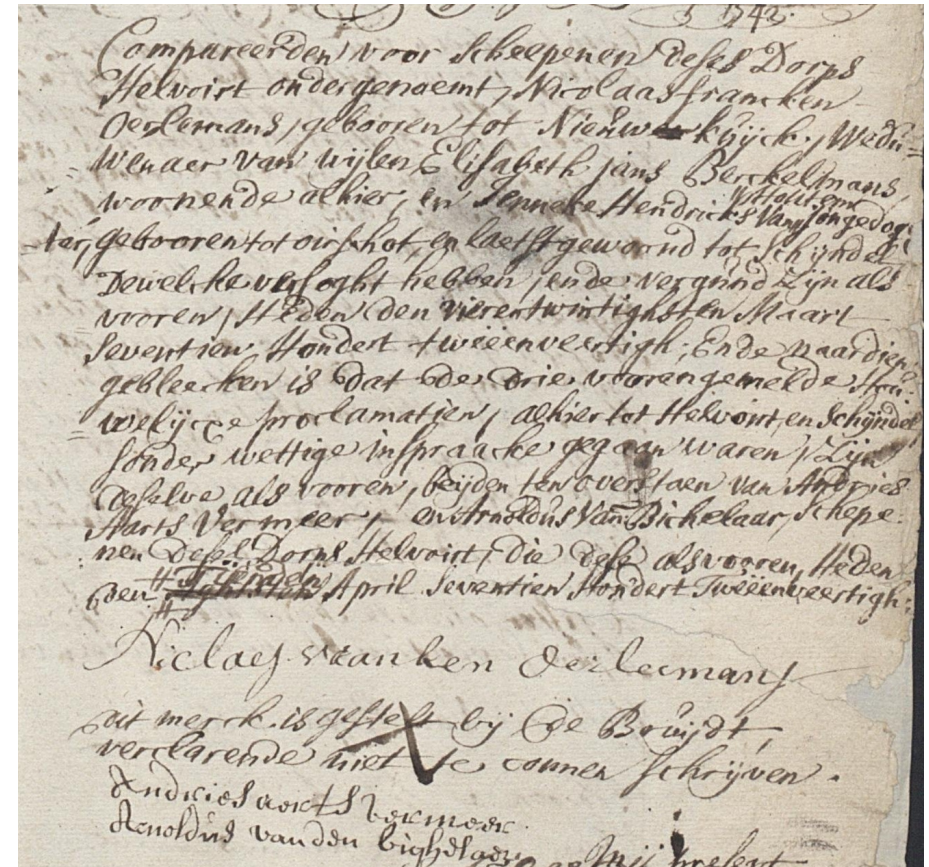 1742.
Compareerden voor Scheepenen deses Dorps
Helvoirt ondergenoemt, Nicolaas francken
Oerlemans, gebooren tot Nieuwkuijck, Wedu=
wenaer van wijlen Elisabeth Jans Berckelmans,
woonende alhier, en Jenneke Hendricks van Jongedog
ter, gebooren tot oirschot, en laetst gewoond tot Schijndel
Dewelcke versoght hebben, ende vergund zijn als
vooren, Heden den vierentwintighsten Maart
Seventien Hondert tweeenveertigh, Ende naardien
gebleecken is dat de drie voorengemelde Hou=
welijcxe proclamatien, alhier tot Helvoirt, en Schijndel
sonder wettige inspraacke gegaan waren, Zijn
deselve als vooren, beijden ten overstaen van Andries
Aarts Vermeer, en Arnoldus Van Bichelaar, Schepe=
nen deses Dorps Helvoirt, die dese als vooren, Heden
den April Seventien Hondert Tweeenveertigh.
Niclaes vranken Oerlemans
dit merck is gestelt bij de Bruijdt,
verclarende niet te connen schrijven.
Andries aerts Vermeer
Arnoldus van den bighelaer
Mij present